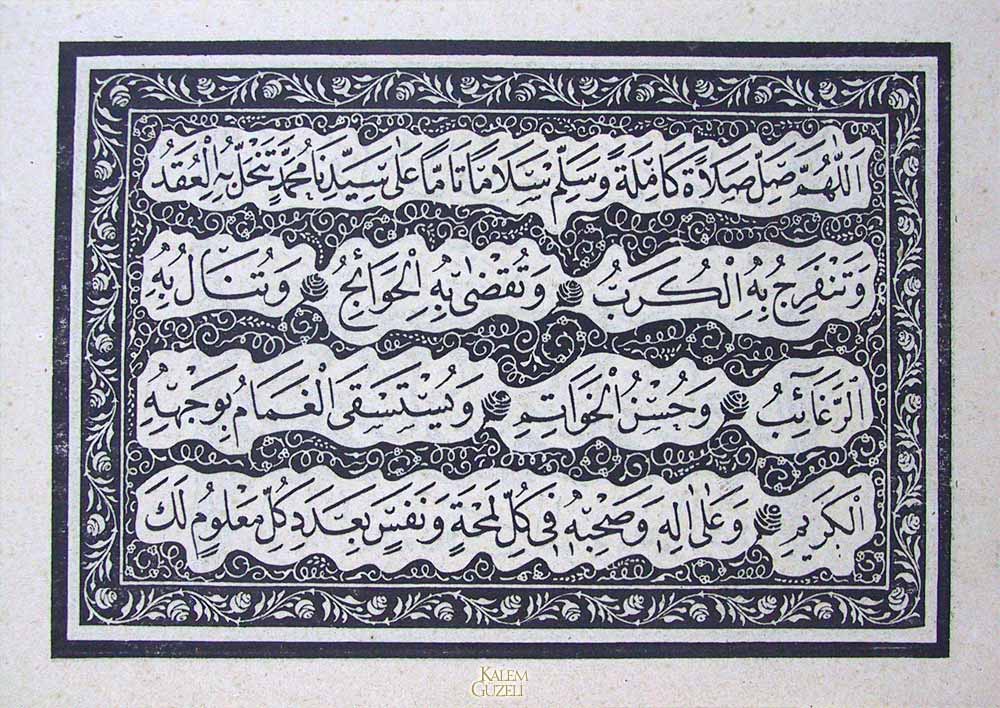 اَللّٰهُمَّ صَلِّ صَلَاةً كَامِلَةً وَسَلِّمْ سَلَامًا تَامًّا عَلٰى سَيِّدِنَا مُحَمَّدٍ تَنْحَلُّ بِهِ الْعُقَدُ
وَتَنْفَرِجُ بِهِ الْكُرَبُ وَتُقْضٰى بِهِ الْحَوَائِجُ وَتُنَالُ بِهِ
الرَّغَائِبُ وَحُسْنُ الْخَوَاتِمِ وَيُسْتَسْقَى الْغَمَامُ بِوَجْهِهِ
الْكَرِيمِ وَعَلٰى اٰلِهِ وَصَحْبِهِ فِى كُلِّ لَمْحَةٍ وَنَفَسٍ بِعَدَدِ كُلِّ مَعْلُومٍ لَكَ
KALEM
GÜZELİ